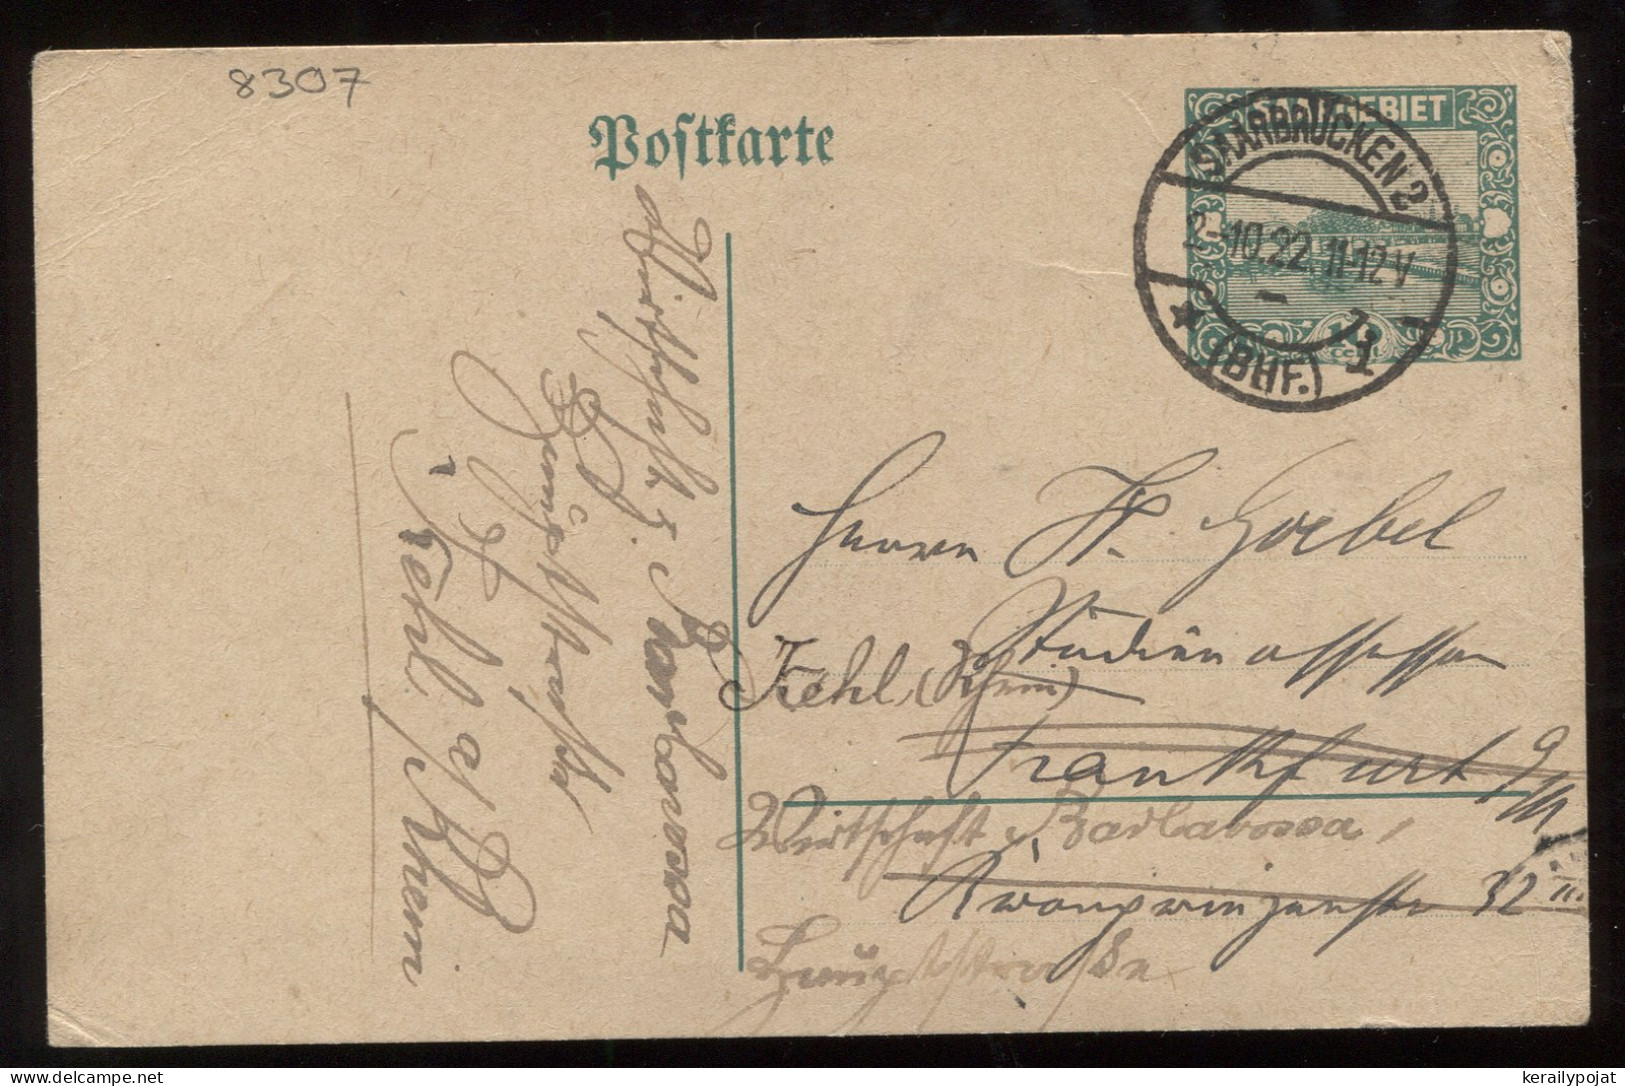 8307
Postkarte
SAARGEBIET
SAARBRÜCKEN 2
2.-10.22. 11-12 V
(BHF.)
Herrn Fr. Goebel
Studienassessor
Kehl (Rhein)
Frankfurt a/M
Wirtschaft z. Barbarossa,
Kronprinzenstr 32 III
Hauptstraße
Wirtschaft z. Barbarossa
Hauptstraße
Kehl a/Rhein
kerailypojat